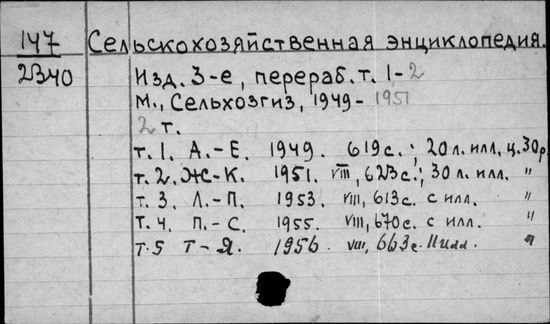 147 Сельскохозяйственная энциклопедия.
2340 Изд. 3-е, перераб. т. 1-2
М., Сельхозгиз, 1949-1951
2 т.
т. 1. А.-Е. 1949. 619 с.; 20 л. илл. ц. 30 р.
т. 2. Ж-К. 1951. VIII, 623 с.; 30 л. илл. "
т. 3. Л.-П. 1953. VIII, 613 с. с илл. "
т. 4. П.-С. 1955. VIII, 670 с. с илл. "
т. 5 Т-Я. 1956. VIII, 663 с. илл. "